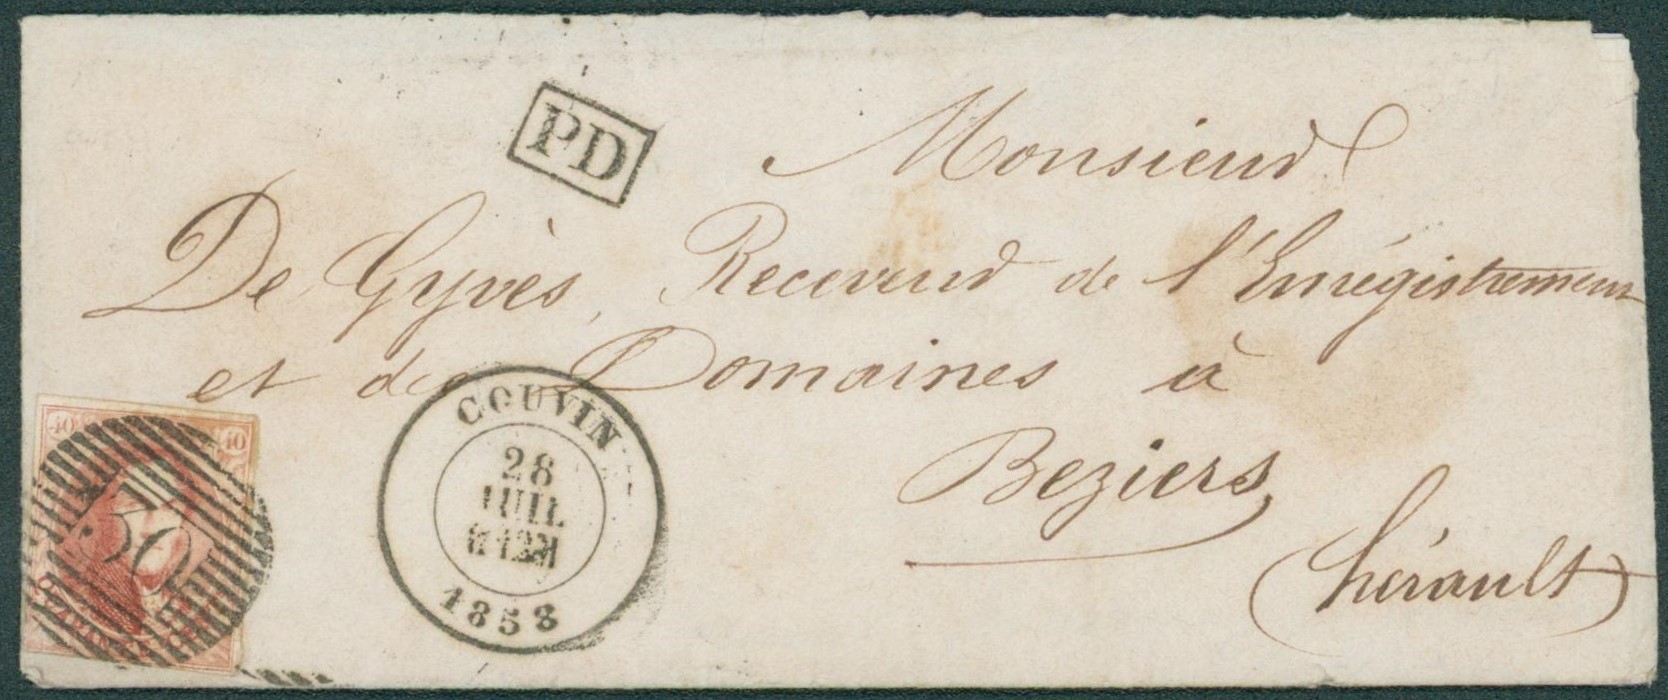 PD
Monsieur
De Gyvès, Receveur de l'Enrégistrement
et des Domaines à
Beziers
(hérault)
COUVIN
28
JUIL
1858
40 40
50